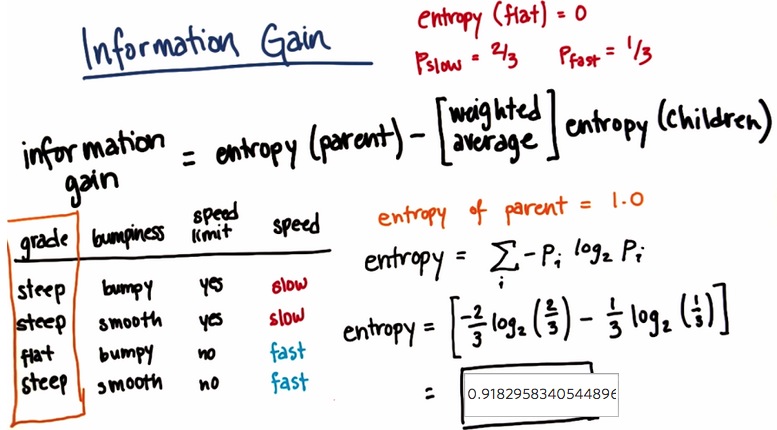 Information Gain
entropy (flat) = 0
Pslow = 2/3 Pfast = 1/3
information gain = entropy (parent) - [weighted average] entropy (children)
grade bumpiness speed limit speed
steep bumpy yes slow
steep smooth yes slow
flat bumpy no fast
steep smooth no fast
entropy of parent = 1.0
entropy = Σi -Pi log2 Pi
entropy = [-2/3 log2 (2/3) - 1/3 log2 (1/3)]
= 0.9182958340544896